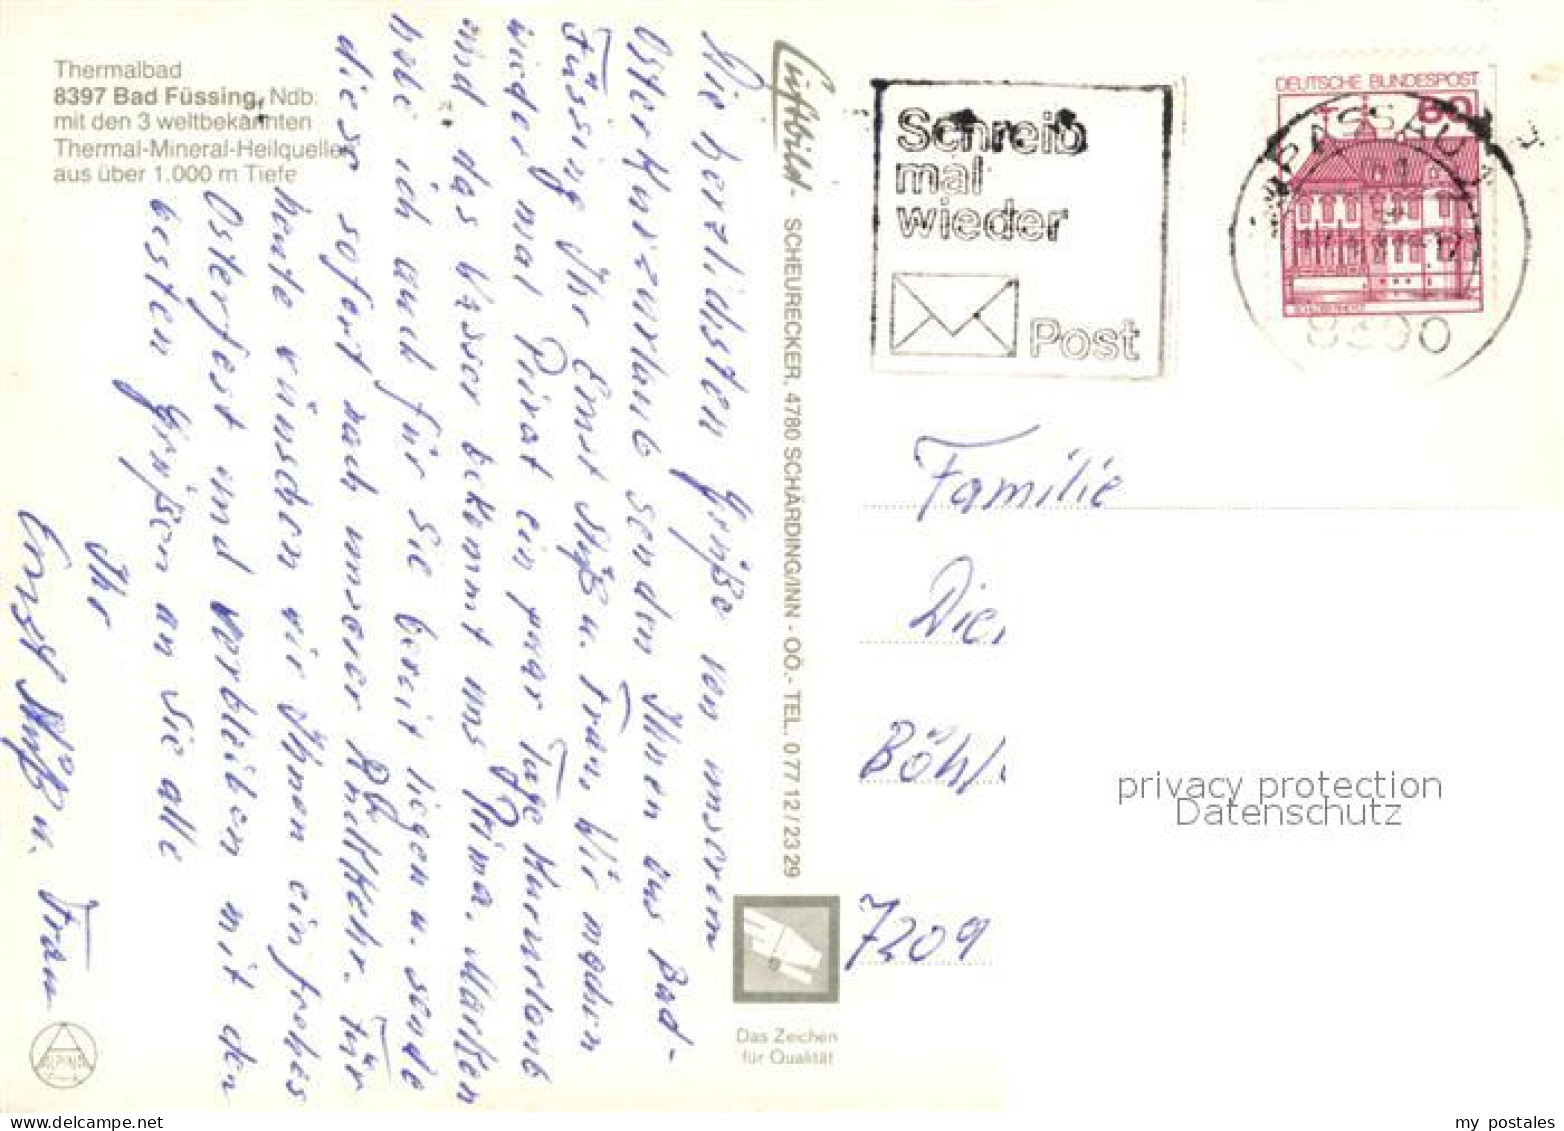 Thermalbad
8397 Bad Füssing, Ndb.
mit den 3 weltbekannten
Thermal-Mineral-Heilquellen
aus über 1.000 m Tiefe
Die herzlichsten Grüße von unserem
Osterkurzurlaub senden Ihnen aus Bad-
Füssing Ihr Ernst u. Frau. Wir machen
wieder mal Privat ein paar Tage Kururlaub
und das Wasser bekommt uns Prima. Marken
habe ich auch für Sie bereit liegen u. sende
diese sofort nach unserer Rückkehr. Für
heute wünschen wir Ihnen ein frohes
Osterfest und verbleiben mit den
besten Grüßen an Sie alle
Ihr
Ernst u. Frau
Luftbild- SCHEURECKER, 4780 SCHÄRDING/INN - OÖ.- TEL. 077 12 / 23 29
Das Zeichen
für Qualität
Schreib
mal
wieder
Post
DEUTSCHE BUNDESPOST
PASSAU
8390
Familie
Die
Böhl
7209
privacy protection
Datenschutz
my postales